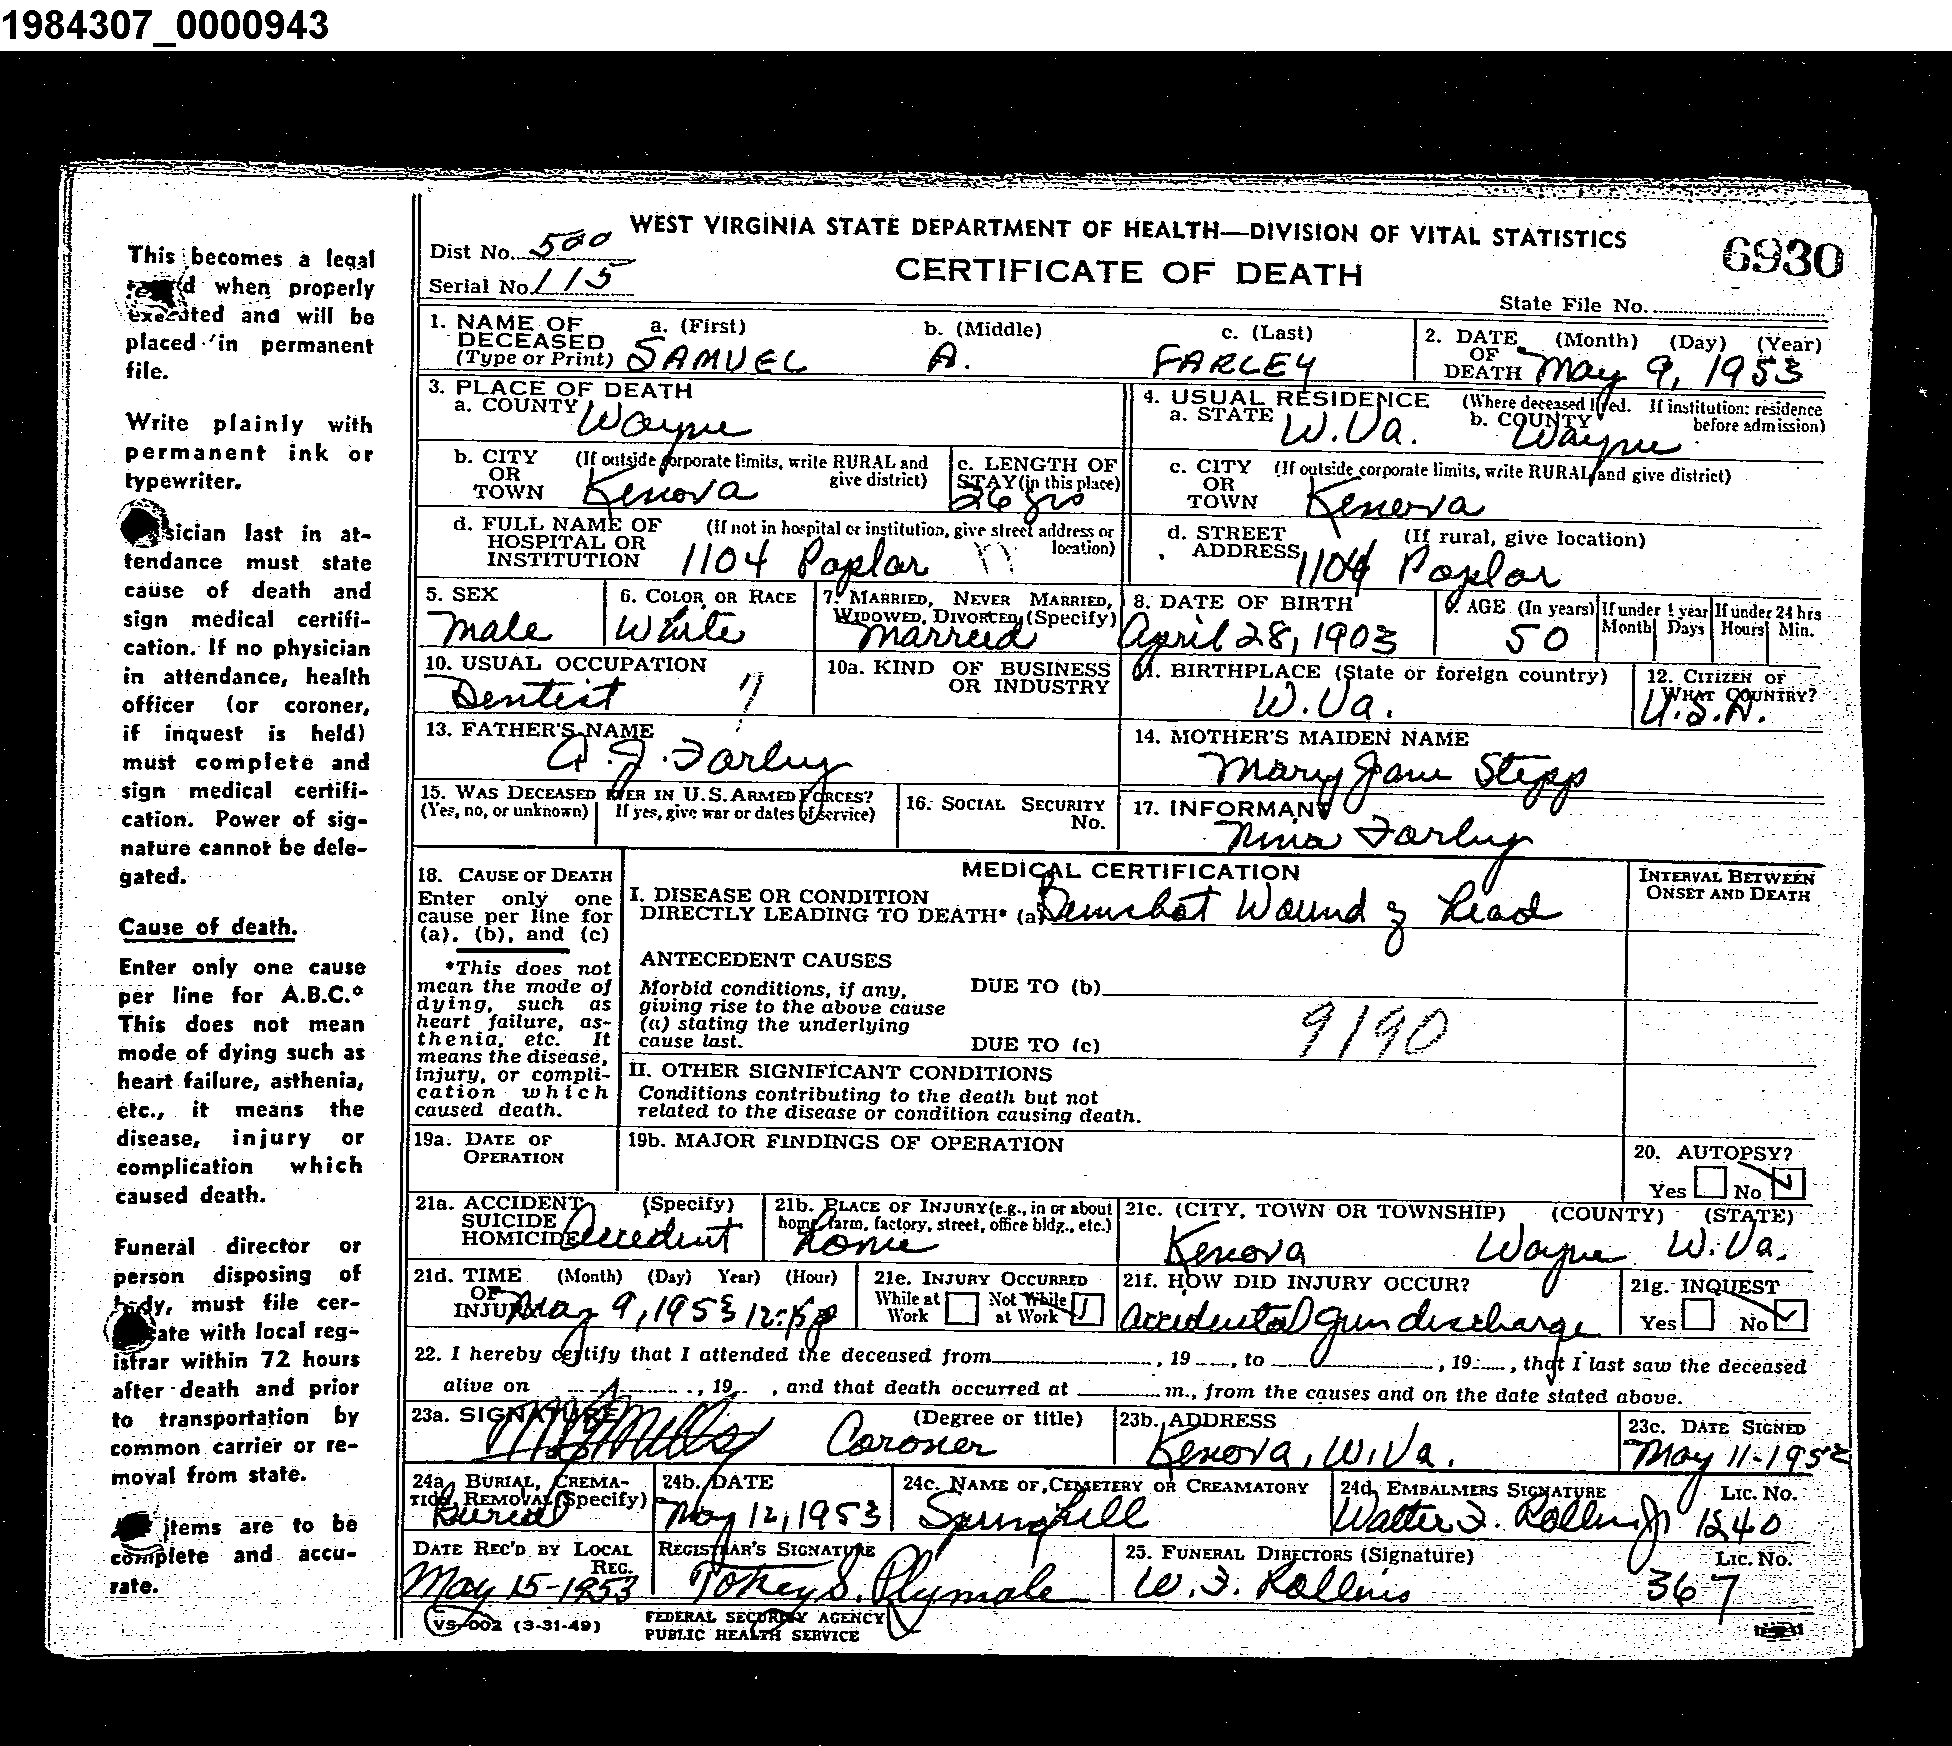 1984307_0000943
This becomes a legal
when properly
executed and will be
placed in permanent
file.
Write plainly with
permanent ink or
typewriter.
sician last in at-
tendance must state
cause of death and
sign medical certifi-
cation. If no physician
in attendance, health
officer (or coroner,
if inquest is held)
must complete and
sign medical certifi-
cation. Power of sig-
nature cannot be dele-
gated.
Cause of death.
Enter only one cause
per line for A.B.C.*
This does not mean
mode of dying such as
heart failure, asthenia,
etc., it means the
disease, injury or
complication which
caused death.
Funeral director or
person disposing of
body, must file cer-
cate with local reg-
istrar within 72 hours
after death and prior
to transportation by
common carrier or re-
moval from state.
items are to be
complete and accu-
rate.
WEST VIRGINIA STATE DEPARTMENT OF HEALTH—DIVISION OF VITAL STATISTICS
Dist No. 500
CERTIFICATE OF DEATH
6930
Serial No. 115
State File No.
1. NAME OF DECEASED (Type or Print) a. (First) SAMUEL b. (Middle) A. c. (Last) FARLEY
2. DATE OF DEATH (Month) (Day) (Year) May 9, 1953
3. PLACE OF DEATH
a. COUNTY Wayne
4. USUAL RESIDENCE (Where deceased lived. If institution: residence before admission)
a. STATE W. Va. b. COUNTY Wayne
b. CITY OR TOWN (If outside corporate limits, write RURAL and give district) Kenova
c. LENGTH OF STAY (in this place) 26 yrs
c. CITY OR TOWN (If outside corporate limits, write RURAL and give district) Kenova
d. FULL NAME OF HOSPITAL OR INSTITUTION (If not in hospital or institution, give street address or location) 1104 Poplar
d. STREET ADDRESS (If rural, give location) 1104 Poplar
5. SEX Male
6. COLOR OR RACE White
7. MARRIED, NEVER MARRIED, WIDOWED, DIVORCED (Specify) Married
8. DATE OF BIRTH April 28, 1903
9. AGE (In years) 50 If under 1 year Month Days If under 24 hrs Hours Min.
10. USUAL OCCUPATION Dentist
10a. KIND OF BUSINESS OR INDUSTRY
11. BIRTHPLACE (State or foreign country) W. Va.
12. CITIZEN OF WHAT COUNTRY? U.S.A.
13. FATHER'S NAME A. J. Farley
14. MOTHER'S MAIDEN NAME Mary Jane Stepp
15. WAS DECEASED EVER IN U.S. ARMED FORCES? (Yes, no, or unknown) If yes, give war or dates of service)
16. SOCIAL SECURITY No.
17. INFORMANT Nina Farley
18. CAUSE OF DEATH
Enter only one
cause per line for
(a), (b), and (c)
*This does not
mean the mode of
dying, such as
heart failure, as-
thenia, etc. It
means the disease,
injury, or compli-
cation which
caused death.
MEDICAL CERTIFICATION
INTERVAL BETWEEN ONSET AND DEATH
I. DISEASE OR CONDITION
DIRECTLY LEADING TO DEATH* (a) Gunshot Wound of head
ANTECEDENT CAUSES
Morbid conditions, if any,
giving rise to the above cause
(a) stating the underlying
cause last.
DUE TO (b)
DUE TO (c)
9190
II. OTHER SIGNIFICANT CONDITIONS
Conditions contributing to the death but not
related to the disease or condition causing death.
19a. DATE OF OPERATION
19b. MAJOR FINDINGS OF OPERATION
20. AUTOPSY?
Yes No ✓
21a. ACCIDENT SUICIDE HOMICIDE (Specify) Accident
21b. PLACE OF INJURY (e.g., in or about home, farm, factory, street, office bldg., etc.) home
21c. (CITY, TOWN OR TOWNSHIP) (COUNTY) (STATE)
Kenova Wayne W. Va.
21d. TIME OF INJURY (Month) (Day) Year) (Hour) May 9, 1953 12:15p
21e. INJURY OCCURRED
While at Work Not While at Work ✓
21f. HOW DID INJURY OCCUR?
Accidental Gun discharge
21g. INQUEST
Yes No ✓
22. I hereby certify that I attended the deceased from , 19 , to , 19 , that I last saw the deceased
alive on , 19 , and that death occurred at m., from the causes and on the date stated above.
23a. SIGNATURE (Degree or title) Mills Coroner
23b. ADDRESS Kenova, W. Va.
23c. DATE SIGNED May 11-1953
24a. BURIAL, CREMATION, REMOVAL (Specify) Burial
24b. DATE May 12, 1953
24c. NAME OF CEMETERY OR CREAMATORY Springhill
24d. EMBALMERS SIGNATURE Lic. No.
Walter F. Rollins Jr 1240
DATE REC'D BY LOCAL REG. May 15-1953
REGISTRAR'S SIGNATURE S. Plymale
25. FUNERAL DIRECTORS (Signature) Lic. No.
W. F. Rollins 367
VS-002 (3-31-49)
FEDERAL SECURITY AGENCY
PUBLIC HEALTH SERVICE